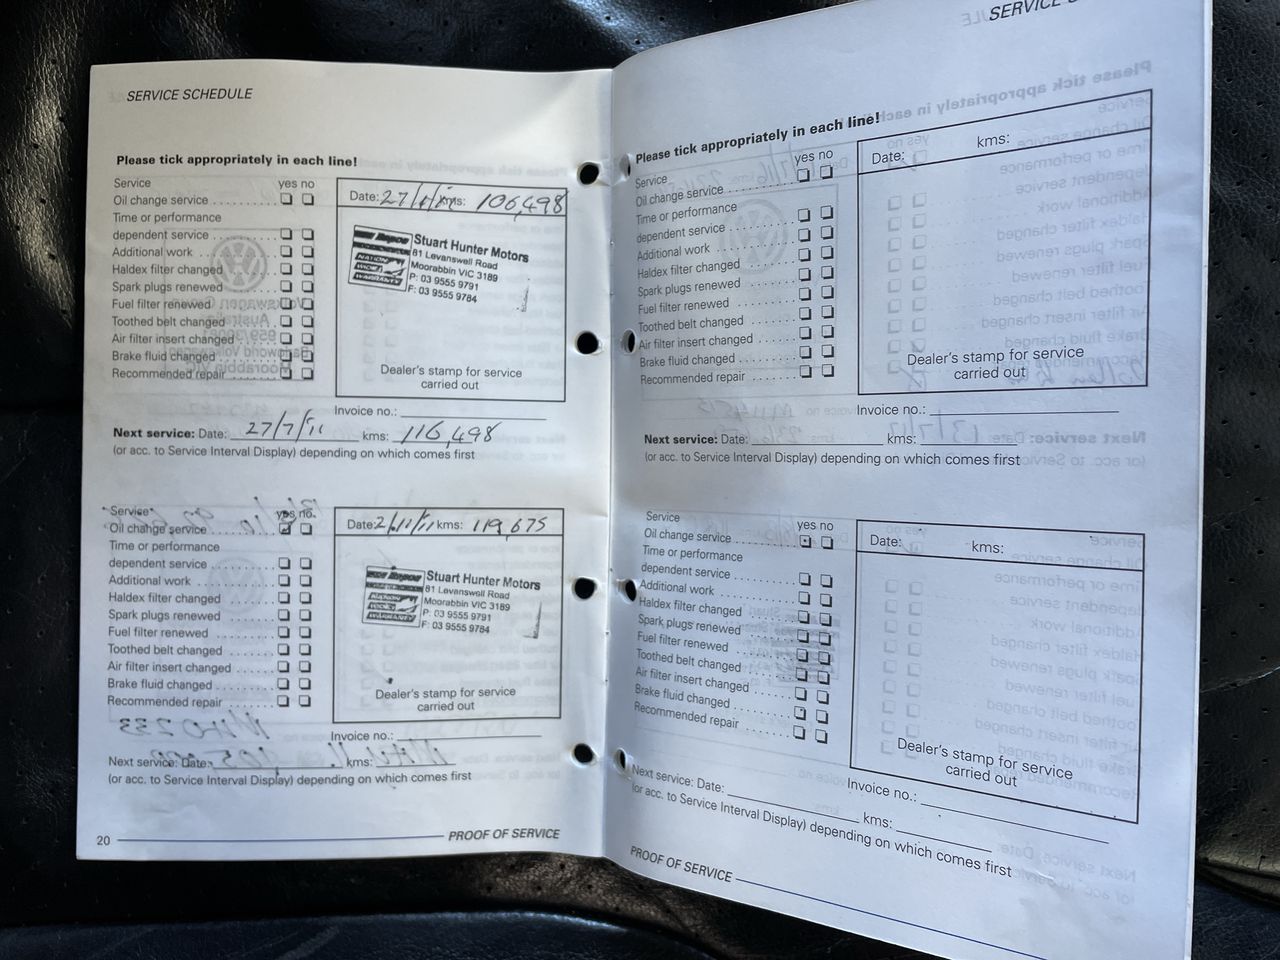 SERVICE SCHEDULE
Please tick appropriately in each line!
Service yes no
Oil change service
Time or performance
dependent service
Additional work
Haldex filter changed
Spark plugs renewed
Fuel filter renewed
Toothed belt changed
Air filter insert changed
Brake fluid changed
Recommended repair
Date: 27/1/11 kms: 106,498
Stuart Hunter Motors
81 Levanswell Road
Moorabbin VIC 3189
P: 03 9555 9791
F: 03 9555 9784
NATION
WIDE
WARRANTY
Dealer's stamp for service
carried out
Invoice no.:
Next service: Date: 27/7/11 kms: 116,498
(or acc. to Service Interval Display) depending on which comes first
Service yes no
Oil change service
Time or performance
dependent service
Additional work
Haldex filter changed
Spark plugs renewed
Fuel filter renewed
Toothed belt changed
Air filter insert changed
Brake fluid changed
Recommended repair
Date: 2/11/11 kms: 119,675
Stuart Hunter Motors
81 Levanswell Road
Moorabbin VIC 3189
P: 03 9555 9791
F: 03 9555 9784
NATION
WIDE
WARRANTY
Dealer's stamp for service
carried out
Invoice no.:
Next service: Date: kms:
(or acc. to Service Interval Display) depending on which comes first
20 PROOF OF SERVICE
SERVICE
Please tick appropriately in each line!
Service yes no
Oil change service
Time or performance
dependent service
Additional work
Haldex filter changed
Spark plugs renewed
Fuel filter renewed
Toothed belt changed
Air filter insert changed
Brake fluid changed
Recommended repair
Date: kms:
Dealer's stamp for service
carried out
Invoice no.:
Next service: Date: kms:
(or acc. to Service Interval Display) depending on which comes first
Service yes no
Oil change service
Time or performance
dependent service
Additional work
Haldex filter changed
Spark plugs renewed
Fuel filter renewed
Toothed belt changed
Air filter insert changed
Brake fluid changed
Recommended repair
Date: kms:
Dealer's stamp for service
carried out
Invoice no.:
Next service: Date: kms:
(or acc. to Service Interval Display) depending on which comes first
PROOF OF SERVICE